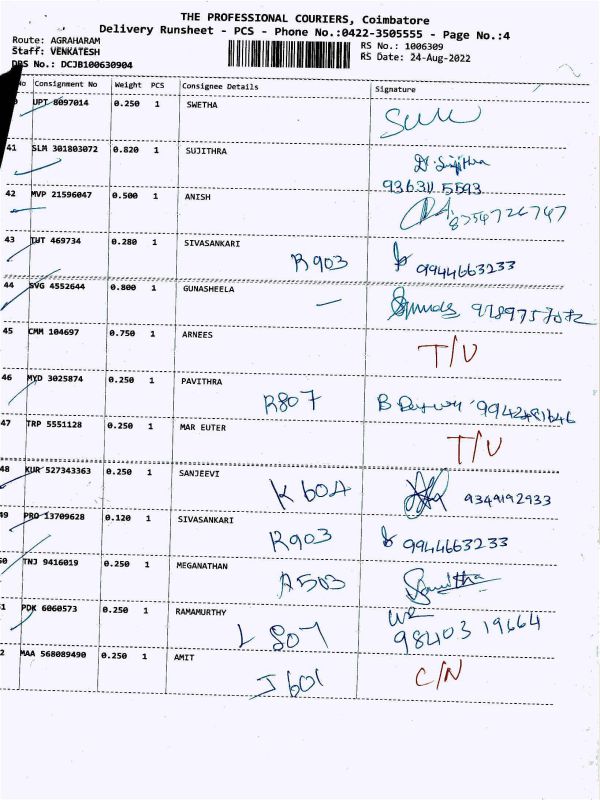 THE PROFESSIONAL COURIERS, Coimbatore
Delivery Runsheet - PCS - Phone No.:0422-3505555 - Page No.:4
Route: AGRAHARAM
Staff: VENKATESH
DRS No.: DCJB100630904
RS No.: 1006309
RS Date: 24-Aug-2022
No Consignment No Weight PCS Consignee Details Signature
0 UPT 8097014 0.250 1 SWETHA
41 SLM 301803072 0.820 1 SUJITHRA
936311 5593
42 MVP 21596047 0.500 1 ANISH
8754726747
43 TUT 469734 0.280 1 SIVASANKARI
R903 9944663233
44 SVG 4552644 0.800 1 GUNASHEELA
45 CMM 104697 0.750 1 ARNEES
T/U
46 MYD 3025874 0.250 1 PAVITHRA
R807
47 TRP 5551128 0.250 1 MAR EUTER
T/U
48 KUR 527343363 0.250 1 SANJEEVI
K604 9349192933
49 PRO 13709628 0.120 1 SIVASANKARI
R903 9944663233
50 TNJ 9416019 0.250 1 MEGANATHAN
A503
51 PDK 6060573 0.250 1 RAMAMURTHY
L 807 98403 19664
2 MAA 568089490 0.250 1 AMIT
J601 C/N